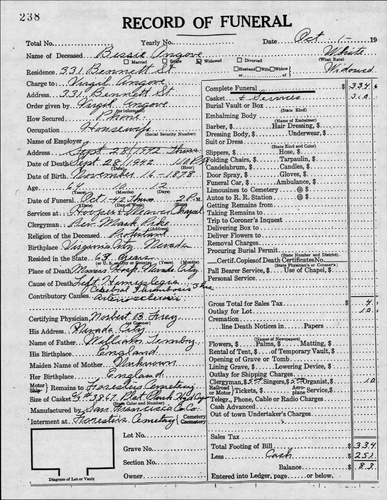 238
RECORD OF FUNERAL
Total No. Yearly No. Date Oct 1- 19
Name of Deceased Bessie Angove White
Married Single Widowed Divorced (What Race)
Residence 331 Bennett St. Husband Wife Widow of Widowed
Charge to Virgil Angove
Address 331 Bennett St.
Order given by Virgil Angove
How Secured Phone
Occupation Housewife
(Social Security Number)
Name of Employer
Date of Death Sept. 28, 1942
Date of Birth November 16 - 1878
Age
(Years) (Months) (Days)
Date of Funeral Oct 1-42 Thurs 2 P.M.
Services at Hooper & Weaver Chapel
Clergyman Rev. Mark Pike
Religion of the Deceased Protestant
Birthplace Virginia City Nevada
Resided in the State 63 Years
Place of Death Hosp. Nevada City
Cause of Death Left Hemiplegia
Contributory Causes
Certifying Physician
His Address Nevada City
Name of Father William
His Birthplace England
Maiden Name of Mother Unknown
Her Birthplace England
Remains to Foresters Cemetery
Size of Casket
Manufactured by San Francisco C. Co.
Interment at Foresters Cemetery (Cemetery Crematory)
Lot No.
Grave No.
Section No.
Owner
Diagram of Lot or Vault
Complete Funeral $ 334
Casket & Services 310
Burial Vault or Box
(State Kind)
Embalming Body
(Name of Embalmer)
Barber, $ Hair Dressing, $
Dressing Body, $ Underwear, $
Suit or Dress
(State Kind and Color)
Slippers, $ Hose, $
Folding Chairs, $ Tarpaulin, $
Candelabrum, $ Candles, $
Door Spray, $ Gloves, $
Funeral Car, $ Ambulance, $
Limousines to Cemetery @ $
Autos to R. R. Station @ $
Getting Remains from
Taking Remains to
Trip to Coroner's Inquest
Delivering Box to
Deliver Flowers to
Removal Charges
Procuring Burial Permit
(State Number and District)
Certif. Copies of Death Certificate No.
Pall Bearer Service, $ Use of Chapel, $
Personal Service
Gross Total for Sales Tax $ 4
Outlay for Lot 10
Cremation
line Death Notices in Papers
(Names of Newspapers)
Flowers, $ Palms, $ Matting, $
Rental of Tent, $ of Temporary Vault, $
Opening of Grave or Tomb
Lining Grave, $ Lowering Device, $
Outlay for Shipping Charges
Clergyman, $ Singers, $ Organist, $ 10
Railroad Tickets, $ Motor Bus, $ Aeroplane Service, $
Telegr., Phone, Cable or Radio Charges
Cash Advanced
Out of town Undertaker's Charges
Sales Tax
Total Footing of Bill $ 334
Less Cash $ 251
Balance $ 83
Entered into Ledger, page or below.